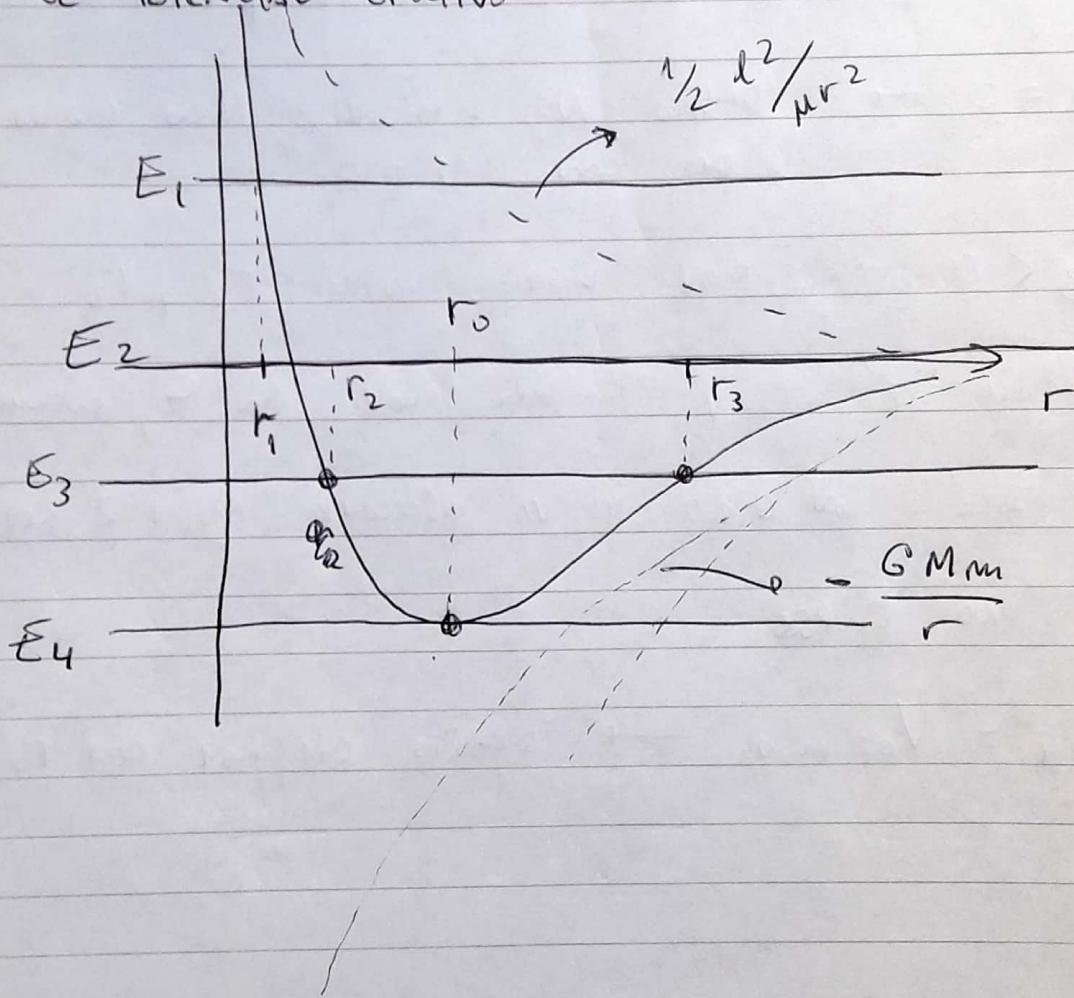 1/2 l²/μr²
E₁
r₀
E₂
r₂
r₃
r
r₁
E₃
- GMm/r
E₄